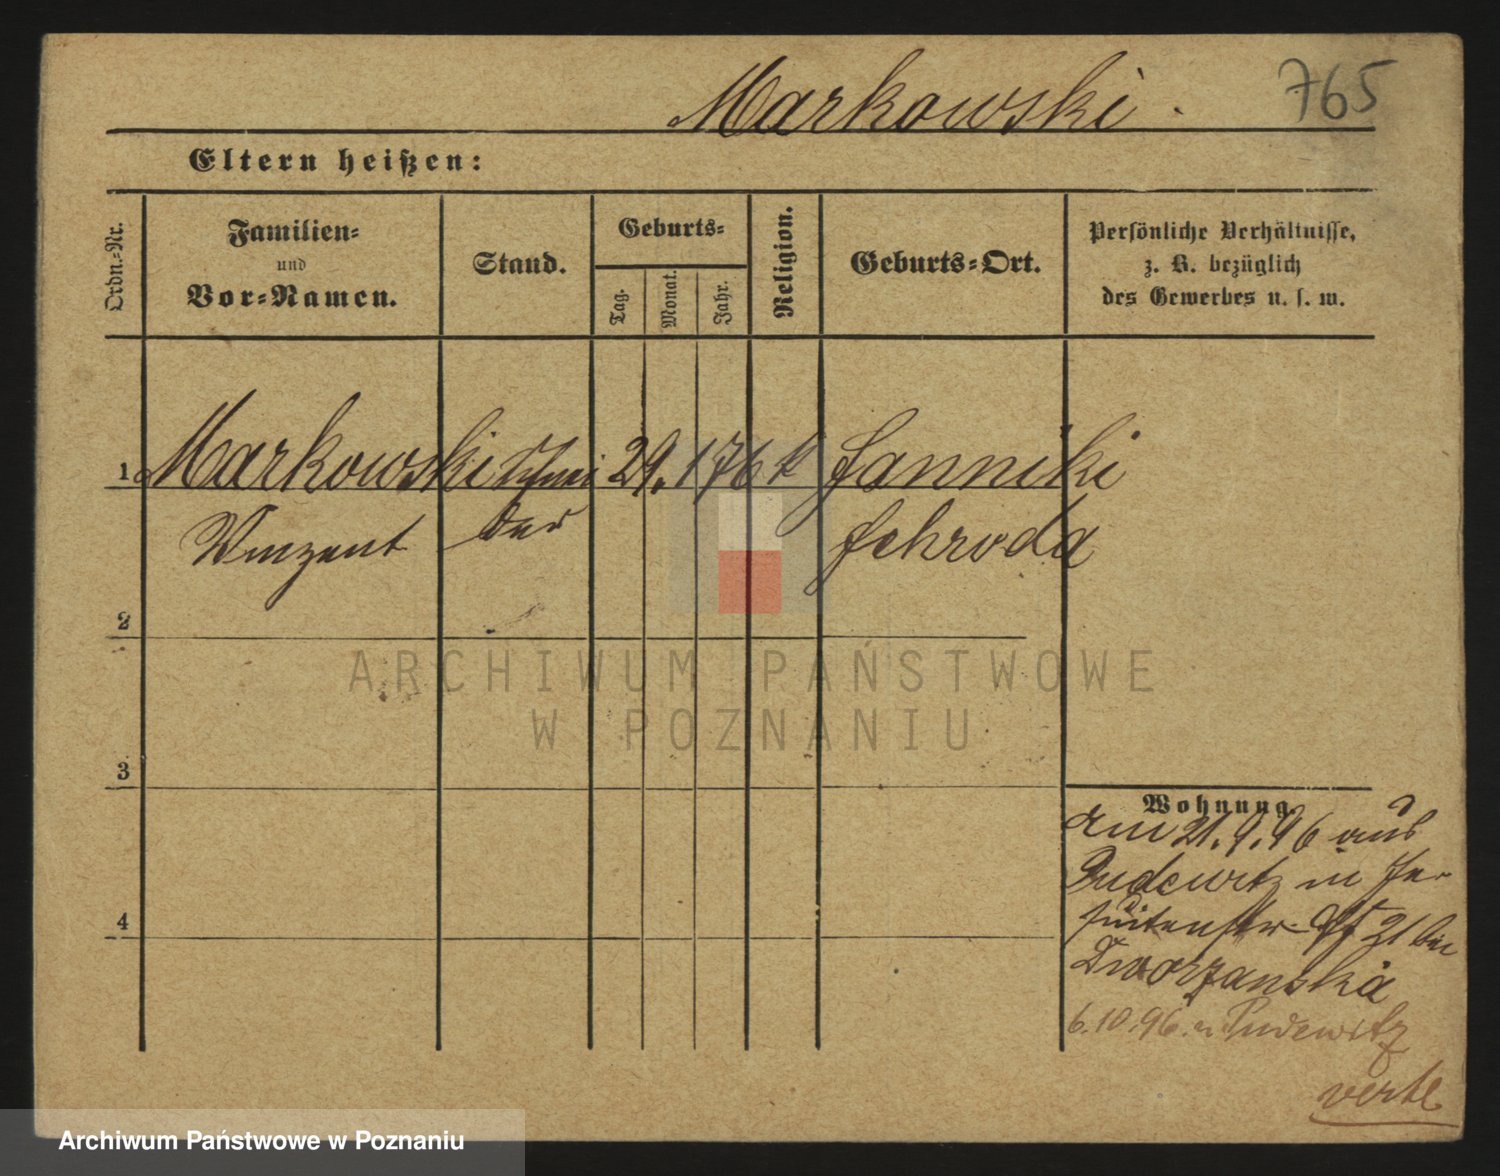 Markowski
765
Eltern heißen:
Ordn.-Nr.
Familien-
und
Vor-Namen.
Stand.
Geburts-
Tag.
Monat.
Jahr.
Religion.
Geburts-Ort.
Persönliche Verhältnisse,
z. B. bezüglich
des Gewerbes u. s. w.
1 Markowski Schnei 29. 1 76 k Janniki
Vinzent der Schroda
2
ARCHIWUM PAŃSTWOWE
W POZNANIU
3
Wohnung.
am 21. 9. 96 aus
Pudewitz in Je-
suitenstr. 21 bei
4
Dworzanska
6.10.96. n. Pudewitz
verte
Archiwum Państwowe w Poznaniu